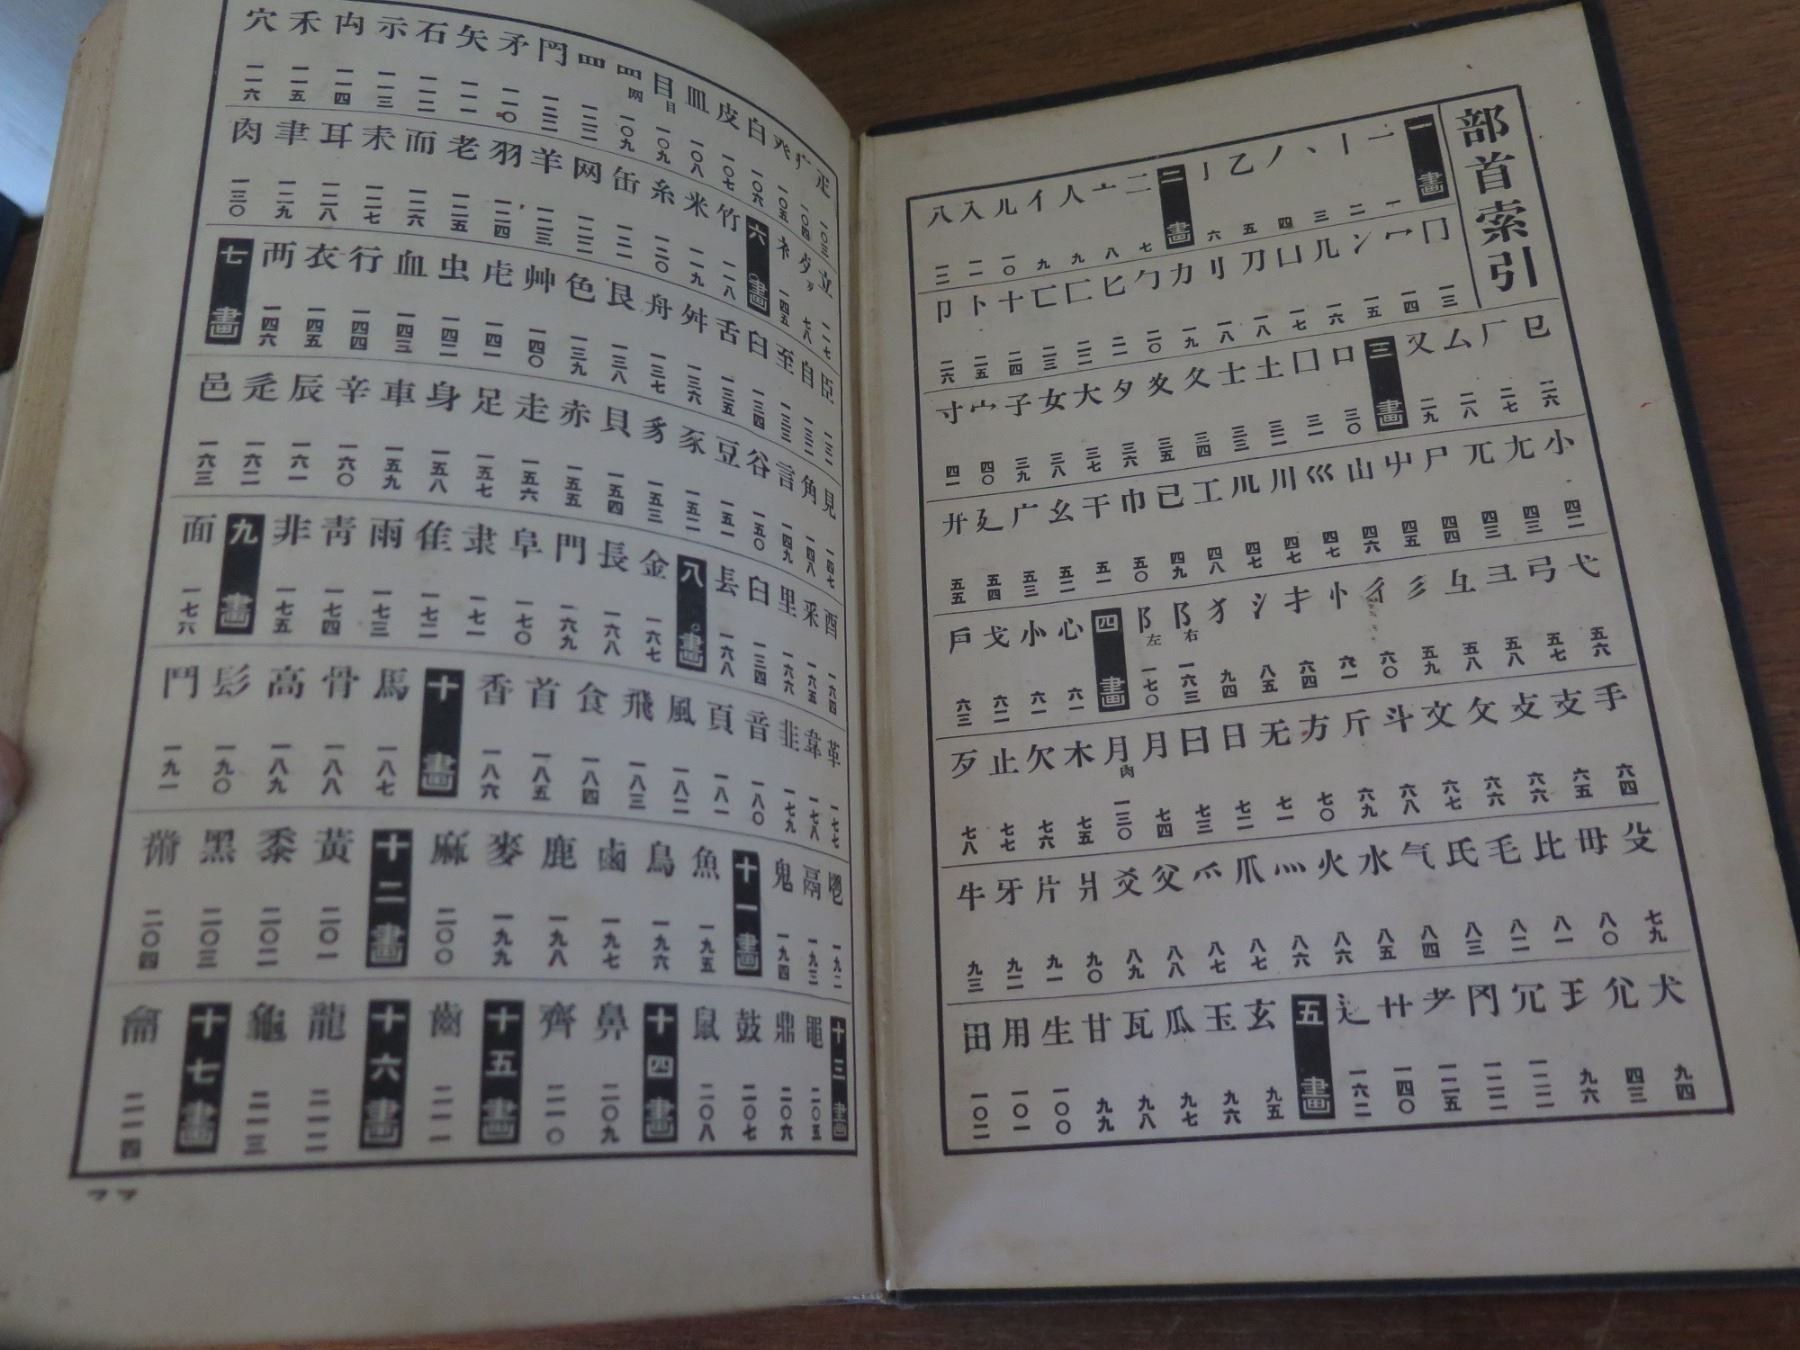 部首索引
一畫 一 丨 丶 丿 乙 亅 二畫 二 亠 人 亻 儿 入 八
一 二 三 四 五 六 七 八 九 九 一〇 一一 一二
冂 冖 冫 几 凵 刀 刂 力 勹 匕 匚 匸 十 卜 卩
一三 一四 一五 一六 一七 一八 一八 一九 二〇 二一 二二 二三 二四 二五 二六
㔾 厂 厶 又 三畫 口 囗 土 士 夂 夊 夕 大 女 子 宀 寸
二六 二七 二八 二九 三〇 三一 三二 三三 三四 三五 三六 三七 三八 三九 四〇 四一
小 尢 兀 尸 屮 山 巛 川 工 己 巾 干 幺 广 廴 廾
四二 四三 四三 四四 四五 四六 四七 四七 四七 四八 四九 五〇 五一 五二 五三 五四 五五
弋 弓 彐 彑 彡 彳 忄 扌 氵 犭 阝右 阝左 四畫 心 㣺 戈 戶
五六 五七 五八 五八 五九 六〇 六一 六四 八五 九四 一六三 一七〇 六一 六一 六二 六三
手 支 攴 攵 文 斗 斤 方 无 日 曰 月 月肉 木 欠 止 歹
六四 六五 六六 六六 六七 六八 六九 七〇 七一 七二 七三 七四 一三〇 七五 七六 七七 七八
殳 毋 比 毛 氏 气 水 火 灬 爪 爫 父 爻 爿 片 牙 牛
七九 八〇 八一 八二 八三 八四 八五 八六 八六 八七 八七 八八 八九 九〇 九一 九二 九三
犬 尣 王 冗 冈 耂 艹 辶 五畫 玄 玉 瓜 瓦 甘 生 用 田
九四 四三 九六 一二二 一二二 一二五 一四〇 一六二 九五 九六 九七 九八 九九 一〇〇 一〇一 一〇二
疋 疒 癶 白 皮 皿 目 矛 矢 石 示 禸 禾 穴
一〇三 一〇四 一〇五 一〇六 一〇七 一〇八 一〇九 一〇九 一二二 一二二 一一〇 一一一 一一二 一一三 一一四 一一五 一一六
立 歺 衤 六畫 竹 米 糸 缶 网 羊 羽 老 而 耒 耳 聿 肉
一一七 七八 一四五 一一八 一一九 一二〇 一二一 一二二 一二三 一二四 一二五 一二六 一二七 一二八 一二九 一三〇
臣 自 至 臼 舌 舛 舟 艮 色 艸 虍 虫 血 行 衣 襾 七畫
一三一 一三二 一三三 一三四 一三五 一三六 一三七 一三八 一三九 一四〇 一四一 一四二 一四三 一四四 一四五 一四六
見 角 言 谷 豆 豕 豸 貝 赤 走 足 身 車 辛 辰 辵 邑
一四七 一四八 一四九 一五〇 一五一 一五二 一五三 一五四 一五五 一五六 一五七 一五八 一五九 一六〇 一六一 一六二 一六三
酉 釆 里 臼 镸 八畫 金 長 門 阜 隶 隹 雨 靑 非 九畫 面
一六四 一六五 一六六 一三四 一六八 一六七 一六八 一六九 一七〇 一七一 一七二 一七三 一七四 一七五 一七六
革 韋 韭 音 頁 風 飛 食 首 香 十畫 馬 骨 高 髟 鬥
一七七 一七八 一七九 一八〇 一八一 一八二 一八三 一八四 一八五 一八六 一八七 一八八 一八九 一九〇 一九一
鬯 鬲 鬼 十一畫 魚 鳥 鹵 鹿 麥 麻 十二畫 黃 黍 黑 黹
一九二 一九三 一九四 一九五 一九六 一九七 一九八 一九九 二〇〇 二〇一 二〇二 二〇三 二〇四
十三畫 黽 鼎 鼓 鼠 十四畫 鼻 齊 十五畫 齒 十六畫 龍 龜 十七畫 龠
二〇五 二〇六 二〇七 二〇八 二〇九 二一〇 二一一 二一二 二一三 二一四